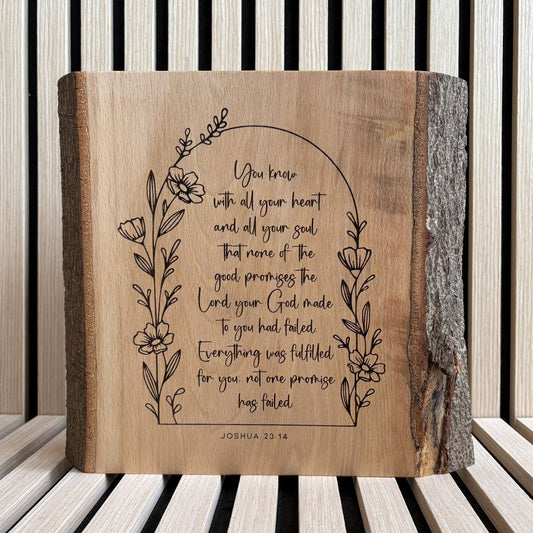 You know
with all your heart
and all your soul
that none of the
good promises the
Lord your God made
to you had failed.
Everything was fulfilled
for you, not one promise
has failed.
JOSHUA 23:14